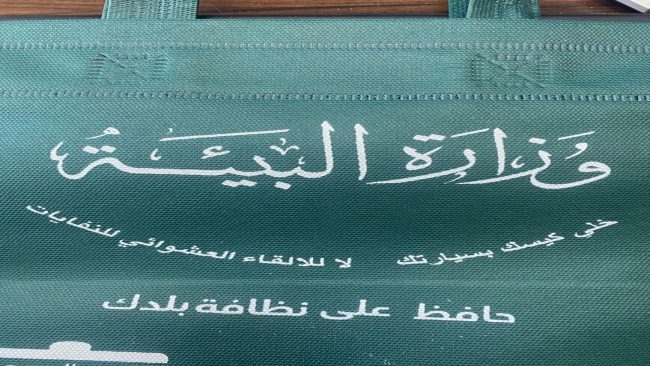 وزارة البيئة
خلي كيسك بسيارتك لا للالقاء العشوائي للنفايات
حافظ على نظافة بلدك